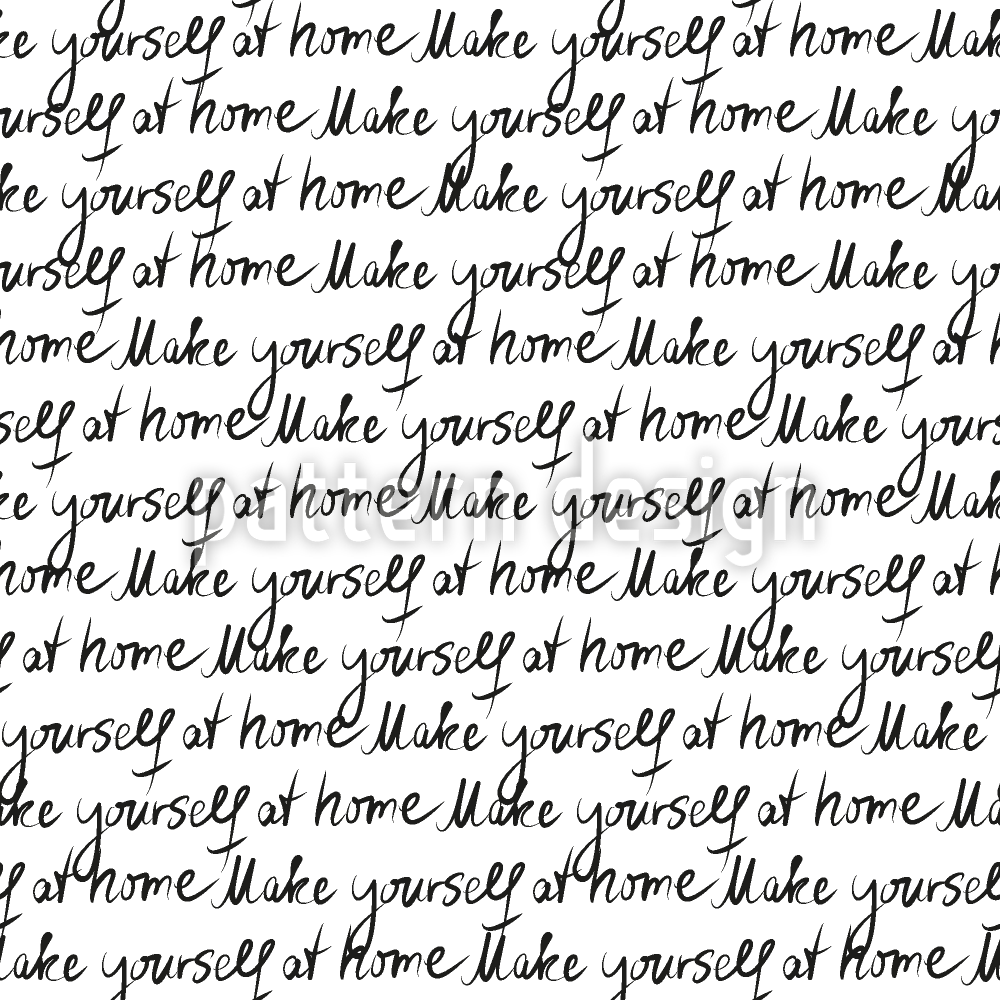 ke yourself at home Make yourself at home Mak
ourself at home Make yourself at home Make yo
ke yourself at home Make yourself at home Mak
ourself at home Make yourself at home Make yo
home Make yourself at home Make yourself at h
self at home Make yourself at home Make yours
ke yourself at home Make yourself at home Mak
pattern design
home Make yourself at home Make yourself at h
f at home Make yourself at home Make yourself
yourself at home Make yourself at home Make
ake yourself at home Make yourself at home Ma
f at home Make yourself at home Make yourself
Make yourself at home Make yourself at home M